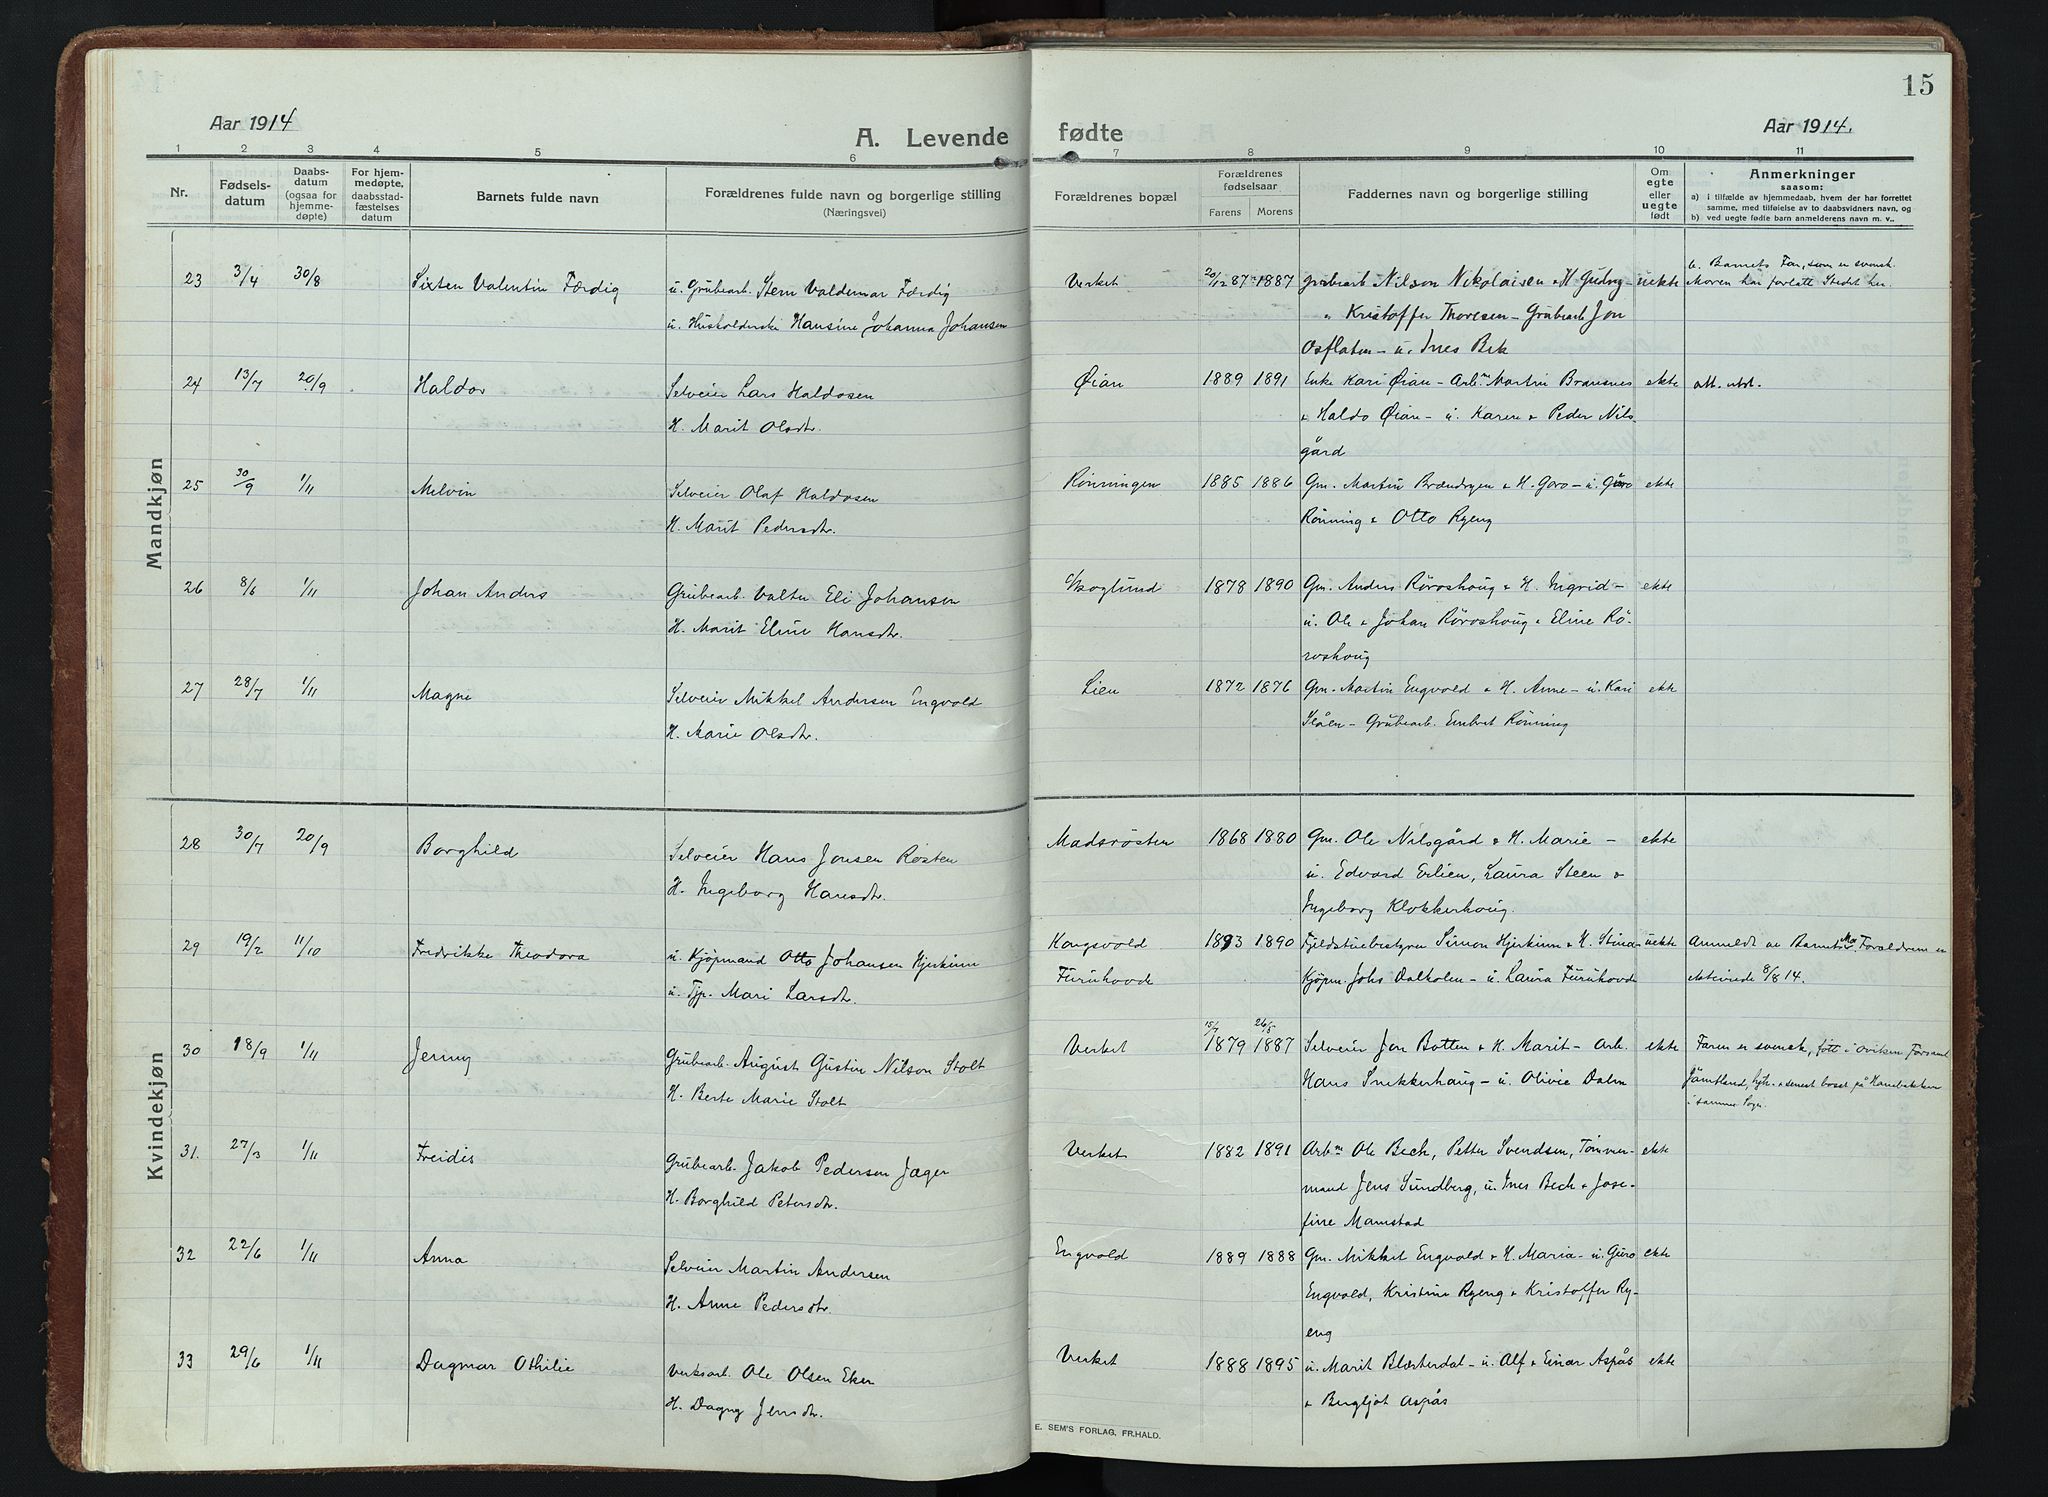 Aar 1914
A. Levende
1 2 3 4 5 6
Nr.
Fødsels-
datum
Daabs-
datum
(ogsaa for
hjemme-
døpte)
For hjem-
medøpte,
daabsstad-
fæstelses
datum
Barnets fulde navn
Forældrenes fulde navn og borgerlige stilling
(Næringsvei)
Mandkjøn
23 3/4 30/8 Sixten Valentin Færdig u. Grubearb. Sten Valdemar Færdig
u. Husholderske Hansine Johanna Johansen
24 13/7 20/9 Haldor Selveier Lars Haldosen
H. Marit Olsdtr.
25 30/9 1/11 Melvin Selveier Olaf Haldosen
H. Marit Pedersdtr.
26 8/6 1/11 Johan Anders Grubearb. Valter Eli Johansen
H. Marit Eline Hansdtr.
27 28/7 1/11 Magne Selveier Mikkel Andersen Engvold
H. Marie Olsdtr.
Kvindekjøn
28 30/7 20/9 Borghild Selveier Hans Jonsen Røsten
H. Ingeborg Hansdtr.
29 19/2 11/10 Fredrikke Theodora u. Kjøpmand Otto Johansen Hjerkinn
u. Tjp. Mari Larsdtr.
30 18/9 1/11 Jenny Grubearb. August Gustin Nilson Stolt
H. Berte Marie Stolt
31. 27/3 1/11 Freidis Grubearb. Jakob Pedersen Jæger
H. Borghild Petersdtr.
32 22/6 1/11 Anna Selveier Martin Andersen
H. Anne Pedersdtr.
33 29/6 1/11 Dagmar Othilie Verksarb. Ole Olsen Eker
H. Dagny Jensdtr.
15
fødte
Aar 1914.
7 8 9 10 11
Forældrenes bopæl
Forældrenes
fødselsaar
Farens Morens
Faddernes navn og borgerlige stilling
Om
egte
eller
uegte
født
Anmerkninger
saasom:
a) i tilfælde av hjemmedaab, hvem der har forrettet
samme, med tilføielse av to daabsvidners navn, og
b) ved uegte fødte barn anmelderens navn m. v..
Verket 20/12 87 1887 Grubearb. Nilson Nikolaisen & H. Gudny - uekte b. Barnets Far, som er svensk.
" Kristoffer Thoresen - Grubearb. Jon Moren har forlatt Stedet her.
Osflaten - u. Ines Bek
Øian 1889 1891 Enke Kari Øian - Arbm. Martin Bransnes ekte att. utst.
& Haldo Øian - u. Karen & Peder Nils-
gård
Rønningen 1885 1886 Gm. Martin Brændryen & H. Goro - u. Guro ekte
Rønning & Otto Ryeng
Skoglund 1878 1890 Gm. Anders Røroshoug & H. Ingrid - ekte
u. Ole & Johan Røroshoug & Eline Rø-
roshoug
Lien 1872 1876 Gm. Martin Engvold & H. Anne - u. Kari ekte
Slåen - Grubearb. Embret Rønning
Madsrøsten 1868 1880 Gm. Ole Nilsgård & H. Marie - ekte
u. Edvard Evlien, Laura Steen &
Ingeborg Klokkerhoug.
Kongsvold 1893 1890 Fjeldstuebestyrer Simon Hjerkinn & H. Stina uekte Anmeldt av Barnets Mo. Forældrene er
Furuhovde Kjøpm. Johs Dalholen - u. Laura Furuhovde ektevinde 8/8 14.
Verket 15/7 1879 26/5 1887 Selveier Jon Botten & H. Marit - Arb. ekte Faren er svensk, født i Oviken Forsaml
Hans Snekkerhaug - u. Olivie Dalen Jämtland, senest bosat på Hanebakken
i samme Sogn.
Verket 1882 1891 Arbm. Ole Bech, Petter Svendsen, Tømmer- ekte
mand Jens Sundberg, u. Ines Bech & Jose-
fine Mamstad
Engvold 1889 1888 Gm. Mikkel Engvold & H. Maria - u. Guro ekte
Engvold, Kristine Ryeng & Kristoffer Ry-
eng
Verket 1888 1895 u. Marit Blæsterdal - u. Alf & Einar Aspås ekte
& Bergljot Aspås
E. SEM'S FORLAG, FR.HALD.